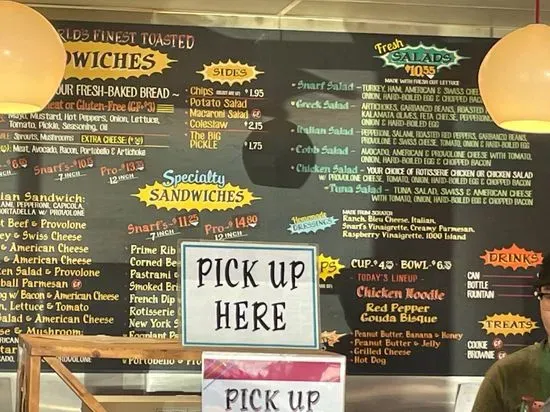 WORLDS FINEST TOASTED
SANDWICHES
OUR FRESH-BAKED BREAD ~
Wheat or Gluten-Free (GF·$3)
Mayo, Mustard, Hot Peppers, Onion, Lettuce,
Tomato, Pickle, Seasoning, Oil
Sprouts, Mushrooms EXTRA CHEESE
Meat, Avocado, Bacon, Portobello & Artichoke
Snarf's 7 INCH Pro 12 INCH
SIDES
Chips $1.95
Potato Salad
Macaroni Salad
Coleslaw $2.15
The BIG
PICKLE $1.75
Specialty
SANDWICHES
Snarf's 7 INCH Pro 14.80 12 INCH
Italian Sandwich w/:
SALAMI, PEPPERONI, CAPICOLA,
MORTADELLA W/ PROVOLONE
Beef & Provolone
& Swiss Cheese
& American Cheese
& American Cheese
Chicken Salad & Provolone
Meatball Parmesan
w/ Bacon & American Cheese
Lettuce & Tomato
Salad & American Cheese
Cheese & Mushroom:
Prime Rib
Corned Be
Pastrami
Smoked Bri
French Dip
Rotisserie
New York S
Eggplant P
Portobello & Pro
Fresh
SALADS
$10.55
MADE WITH FRESH CUT LETTUCE
· Snarf Salad - TURKEY, HAM, AMERICAN & SWISS CHEESE
ONION, HARD-BOILED EGG & CHOPPED BACON
· Greek Salad - ARTICHOKES, GARBANZO BEANS, ROASTED
KALAMATA OLIVES, FETA CHEESE, PEPPERONI
ONION & HARD-BOILED EGG
· Italian Salad - PEPPERONI, SALAMI, ROASTED RED PEPPERS, GARBANZO BEANS,
PROVOLONE & SWISS CHEESE, TOMATO, ONION & HARD-BOILED EGG
· Cobb Salad - AVOCADO, AMERICAN & PROVOLONE CHEESE WITH TOMATO,
ONION, HARD-BOILED EGG & CHOPPED BACON
· Chicken Salad - YOUR CHOICE OF ROTISSERIE CHICKEN OR CHICKEN SALAD
W/ PROVOLONE CHEESE, TOMATO, ONION, HARD-BOILED EGG & CHOPPED BACON
· Tuna Salad - TUNA SALAD, SWISS & AMERICAN CHEESE
WITH TOMATO, ONION, HARD-BOILED EGG & CHOPPED BACON
Homemade
DRESSINGS
MADE FROM SCRATCH
Ranch, Bleu Cheese, Italian,
Snarf's Vinaigrette, Creamy Parmesan,
Raspberry Vinaigrette, 1000 Island
PS CUP·$4.5 · BOWL·$6.5
· TODAY'S LINEUP ·
Chicken Noodle
Red Pepper
Gouda Bisque
- Peanut Butter, Banana & Honey
- Peanut Butter & Jelly
- Grilled Cheese
- Hot Dog
DRINKS
CAN
BOTTLE
FOUNTAIN
TREATS
COOKIE
BROWNIE
PICK UP
HERE
PICK UP